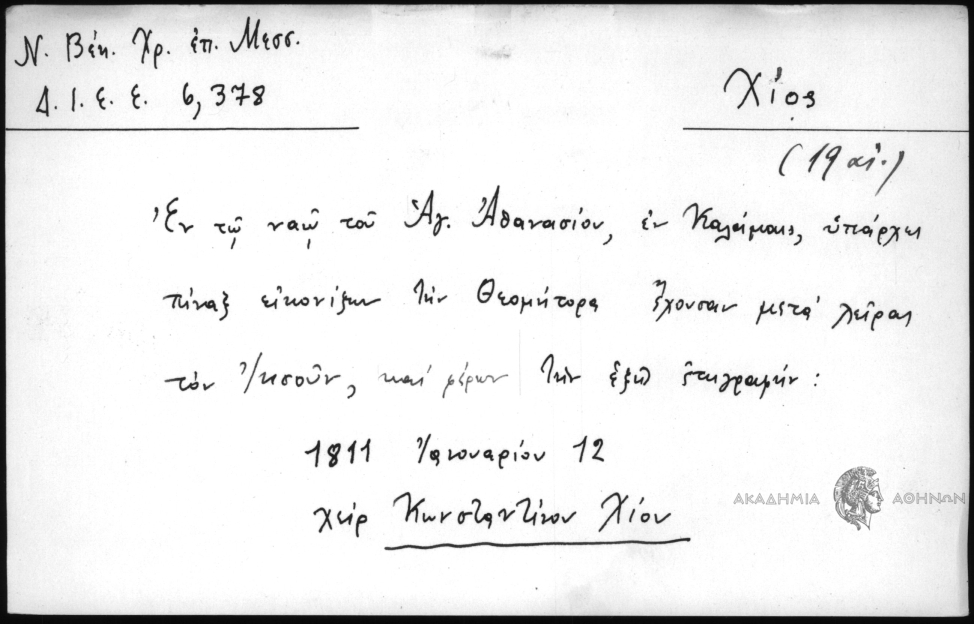 Ν. Βέη. Χρ. ἐπ. Μεσσ.
Δ. Ι. Ε. Ε. 6, 378
Χίος
(19 αἰ.)
Ἐν τῷ ναῷ τοῦ Ἁγ. Ἀθανασίου, ἐν Καλάμαις, ὑπάρχει
πίναξ εἰκονίζων τὴν Θεομήτορα ἔχουσαν μετὰ χεῖρας
τὸν Ἰησοῦν, καὶ φέρων τὴν ἑξῆς ἐπιγραφήν:
1811 Ἰαννουαρίου 12
χεὶρ Κωνσταντίνου Χίου
ΑΚΑΔΗΜΙΑ ΑΘΗΝΩΝ